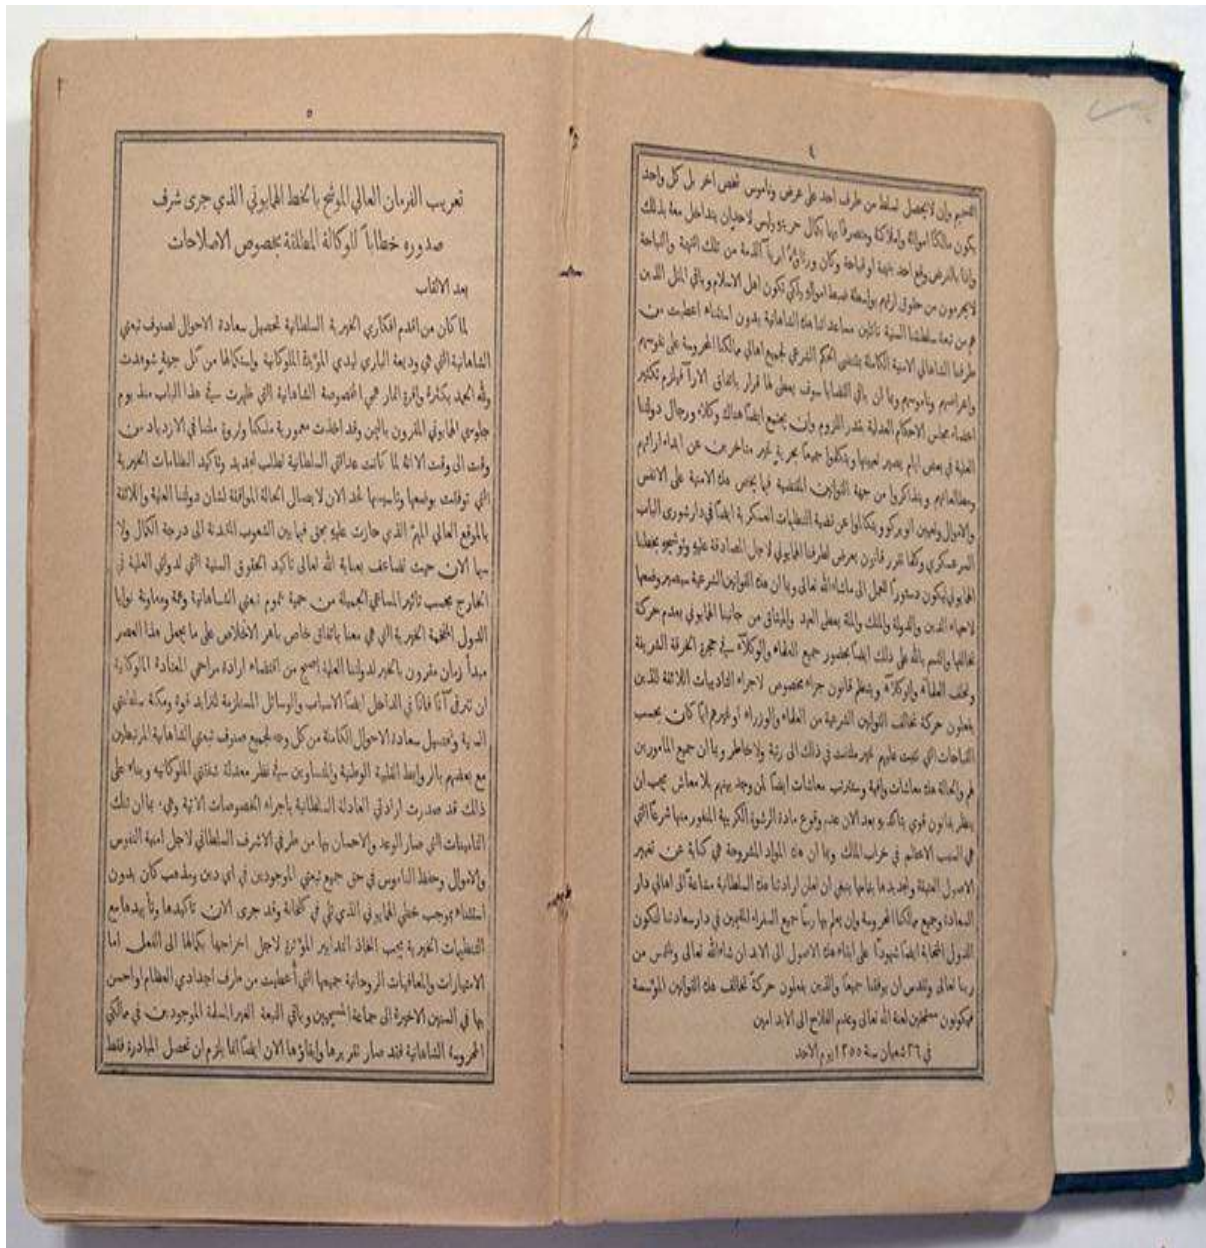 ٤
التنجيم وان لا يحصل تسلط من طرف احد على عرض وناموس شخص اخر بل كل واحد
يكون مالكًا امواله واملاكه ومتصرفًا بها بكمال حريته وليس لاحد ان يتداخل معه بذلك
واذا بالفرض وقع احد بتهمة او قباحة وكان ورثاؤه ابرياء الذمة من تلك التهمة والقباحة
لا يحرمون من حقوق ارثهم بواسطة ضبط امواله ولكي تكون اهل الاسلام وباقي الملل الذين
هم من تبعة سلطنتنا السنية نائلين مساعداتنا هذه الشاهانية بدون استثناء اعطيت من
طرفنا الشاهاني الامنية الكاملة بمقتضى الحكم الشرعي لجميع اهالي ممالكنا المحروسة على نفوسهم
واعراضهم وناموسهم وبما ان باقي القضايا سوف يعطى لها قرار باتفاق الاراء فيلزم تكثير
اعضاء مجلس الاحكام العدلية بقدر اللزوم وان يجتمع ايضًا هناك وكلاء ورجال دولتنا
العلية في بعض ايام يصير تعيينها ويتكلموا جميعًا بحرية غير متاخرين عن ابداء ارائهم
ومطالعاتهم ويتذاكروا من جهة القوانين المقتضية فيما يخص هذه الامنية على الانفس
والاموال وتعيين الويركو ويتكالموا عن قضية التنظيمات العسكرية ايضًا في دار شورى الباب
السر عسكري وكلما تقرر قانون يعرض لطرفنا الهمايوني لاجل المصادقة عليه وتوشيحه بخطنا
الهمايوني ليكون دستورًا للعمل الى ما شاء الله تعالى وبما ان هذه القوانين الشرعية سيصير وضعها
لاحياء الدين والدولة والملك والملة يعطى العهد والميثاق من جانبنا الهمايوني بعدم حركة
تخالفها والقسم بالله على ذلك ايضًا بحضور جميع العلماء والوكلاء في حجرة الخرقة الشريفة
وتحلف العلماء والوكلاء وينتظم قانون جزاء مخصوص لاجراء التاديبات اللائقة للذين
يفعلون حركة تخالف القوانين الشرعية من العلماء والوزراء او غيرهم ايًا كان بحسب
القباحات التي تثبت عليهم غير ملتفت في ذلك الى رتبة ولا خاطر وبما ان جميع المامورين
لهم والحالة هذه معاشات وافية وسترتب معاشات ايضًا لمن وجد بينهم بلا معاش يجب ان
ينظر بقانون قوي بتاكيد بعد الان عدم وقوع مادة الرشوة الكريهة المنفور منها شرعًا التي
هي السبب الاعظم في خراب الملك وبما ان هذه المواد المشروحة هي كناية عن تغيير
الاصول العتيقة وتجديدها بتمامها ينبغي ان تعلن ارادتنا هذه السلطانية مشاعة الى اهالي دار
السعادة وجميع ممالكنا المحروسة وان يعلم بها رسمًا جميع السفراء المقيمين في دار سعادتنا لتكون
الدول المتحابة ايضًا شهودًا على ابقاء هذه الاصول الى الابد ان شاء الله تعالى ونلتمس من
ربنا تعالى وتقدس ان يوفقنا جميعًا والذين يفعلون حركة تخالف هذه القوانين المؤسسة
فيكونون مستحقين لعنة الله تعالى وعدم الفلاح الى الابد امين
في ٢٦ شعبان سنة ١٢٥٥ يوم الاحد
٥
تعريب الفرمان العالي الموشح بالخط الهمايوني الذي جرى شرف
صدوره خطابًا للوكالة المطلقة بخصوص الاصلاحات
بعد الالقاب
لما كان من اقدم افكاري الخيرية السلطانية تحصيل سعادة الاحوال لصنوف تبعتي
الشاهانية التي هي وديعة الباري ليدي المؤيدة الملوكانية واستكمالها من كل جهة شوهدت
ولله الحمد بكثرة وافرة اثمار هممي المخصوصة الشاهانية التي ظهرت في هذا الباب منذ يوم
جلوسي الهمايوني المقرون باليمن وقد اخذت معمورية ملكنا وثروة ملتنا في الازدياد من
وقت الى وقت الا انه لما كانت عدالتي السلطانية تطلب تجديد وتاكيد النظامات الخيرية
التي توفقت بوضعها وتاسيسها لحد الان لايصال الحالة الموافقة لشان دولتنا العلية واللائقة
بالموقع العالي المهم الذي حازت عليه بحق فيما بين الشعوب المتمدنة الى درجة الكمال ولا
سيما الان حيث تضاعف بعناية الله تعالى تاكيد الحقوق السنية التي لدولتي العلية في
الخارج بحسب تاثير المساعي الجميلة من حمية عموم تبعتي الشاهانية وهمة ومعاونة نوايا
الدول المفخمة الخيرية التي هي معنا باتفاق خاص باهر الاخلاص على ما يجعل هذا العصر
مبدأ زمان مقرون بالخير لدولتنا العلية اصبح من اقتضاء ارادة مراحمي المعتادة الملوكانية
ان تترقى آنًا فآنًا في الداخل ايضًا الاسباب والوسائل المستلزمة لتزايد قوة ومكنة سلطنتي
السنية وتحصيل سعادة الاحوال الكاملة من كل وجه لجميع صنوف تبعتي الشاهانية المرتبطين
مع بعضهم بالروابط القلبية الوطنية والمتساوين في نظر معدلة شفقتي الملوكانية وبناء على
ذلك قد صدرت ارادتي العادلة السلطانية باجراء الخصوصات الاتية وهي بما ان تلك
التامينات التي صار الوعد والاحسان بها من طرفي الاشرف السلطاني لاجل امنية النفوس
والاموال وحفظ الناموس في حق جميع تبعتي الموجودين في اي دين ومذهب كان بدون
استثناء بموجب خطي الهمايوني الذي تلي في كلخانة وقد جرى الان تاكيدها وتأييدها مع
التنظيمات الخيرية يجب اتخاذ التدابير المؤثرة لاجل اخراجها بكمالها الى الفعل اما
الامتيازات والمعافيات الروحانية جميعها التي أعطيت من طرف اجدادي العظام او احسن
بها في السنين الاخيرة الى جماعة المسيحيين وباقي التبعة الغير المسلمة الموجودين في ممالكي
المحروسة الشاهانية فقد صار تقريرها وابقاؤها الان ايضًا انما يلزم ان تحصل المبادرة فقط